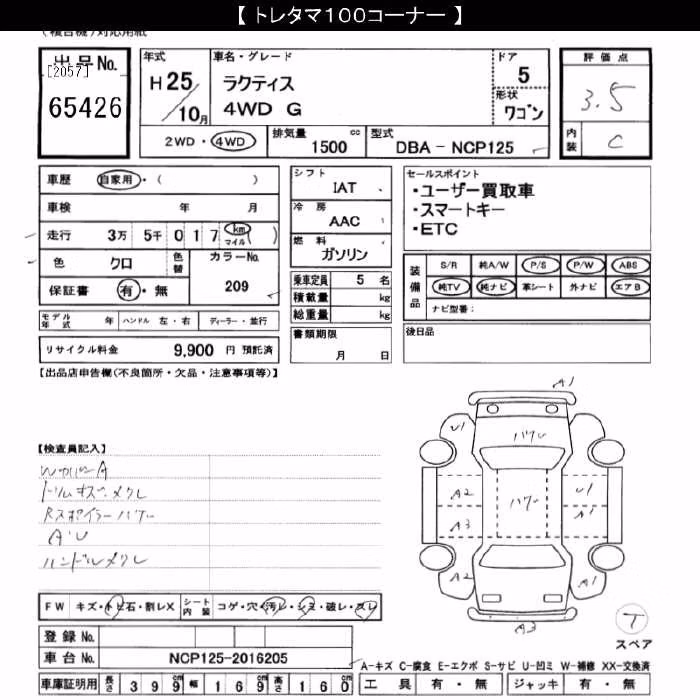 【 トレタマ100コーナー 】
(複合機)対応用紙
出品No.
[2057]
65426
年式
H 25/10月
車名・グレード
ラクティス
4WD G
ドア
5
形状
ワゴン
評価点
3.5
内装
C
2WD・4WD
排気量 1500 cc
型式 DBA - NCP125
車歴 自家用・( )
車検 年 月
走行 3万 5千 0 1 7 km マイル ( )
色 クロ 色替 カラーNo.
保証書 有・無 209
シフト IAT
冷房 AAC
燃料 ガソリン
乗車定員 5 名
積載量 kg
総重量 kg
書類期限
月 日
セールスポイント
・ユーザー買取車
・スマートキー
・ETC
装備品
S/R 純A/W P/S P/W ABS
純TV 純ナビ 革シート 外ナビ エアB
ナビ型番:
後日品
モデル年式 年 ハンドル 左・右 ディーラー・並行
リサイクル料金 9,900 円 預託済
【出品店申告欄(不良箇所・欠品・注意事項等)】
【検査員記入】
WカバーA
トリムキズ・メクレ
Rスポイラーハゲ
A・U
ハンドルメクレ
A1
U1
ハゲ
A2
ハゲ
U1
A3
A1
A2
A1
A3
T
スペア
FW キズ・トビ石・割レX シート内装 コゲ・穴・汚レ・シミ・破レ・スレ
登録No.
車台No. NCP125-2016205
A-キズ C-腐食 E-エクボ S-サビ U-凹ミ W-補修 XX-交換済
車庫証明用 長さ 399 cm 幅 169 cm 高さ 160 cm
工具 有・無 ジャッキ 有・無